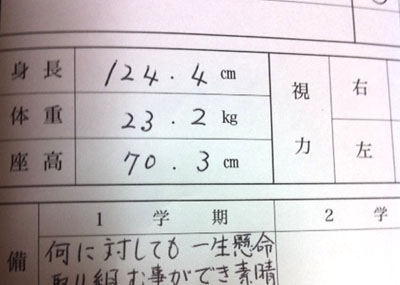 身長 124.4 cm 視力 右
体重 23.2 kg 左
座高 70.3 cm
備 1学期 2学
何に対しても一生懸命
取り組む事ができ素晴